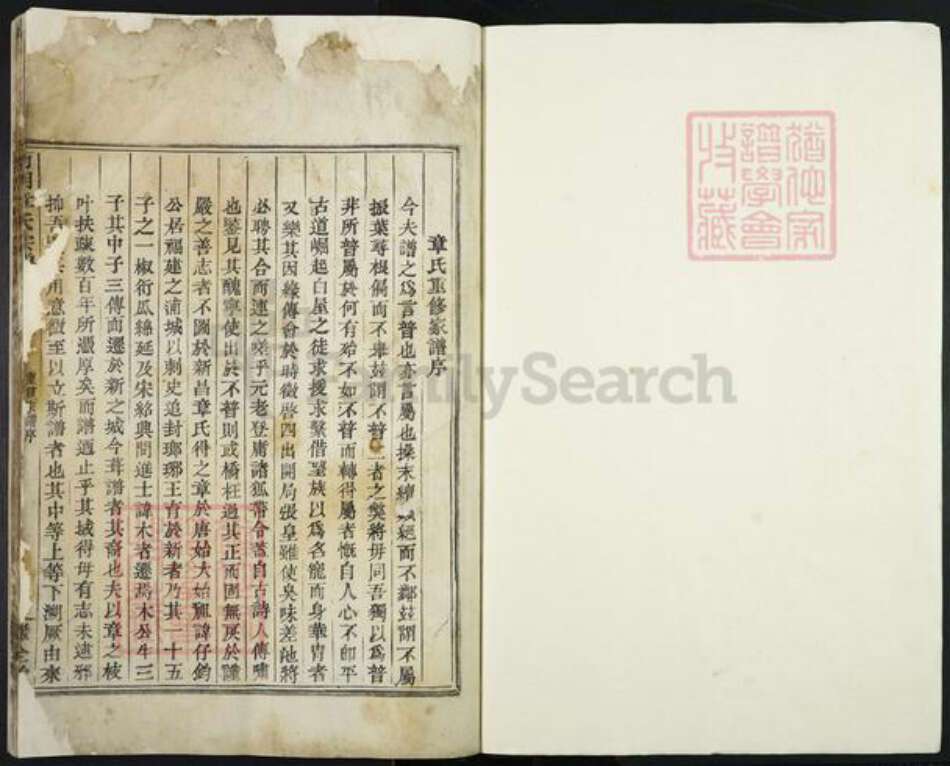 章氏重修家譜序
今夫譜之為言普也亦言屬也操末續 絕而不鄰茲謂不屬
振葉尋根偈而不舉茲謂不普二者之獎將毋同吾獨以為普
非所普屬於何有殆不如不普而轉得屬者慨自人心不卽平
古道崛起白屋之徒求援求繫借望族以為名寵而身華胄者
又樂其因緣傳會於時徵啓四出開局張皇雖使臭味差池將
必聘其合而連之嗟乎元老登庸諸狐帶令昔自古詩人傳嘯
也鑒見其醜寧使出於不普則或橋枉過其正而固無戾於謹
嚴之善志者不圖於新昌章氏得之章於唐始大始祖諱仔鈞
公居福建之浦城以刺史追封瑯琊王育於新者乃其一十五
子之一椒衍瓜綿延及宋紹興間進士諱木者遷焉木公生三
子其中子三傳而遷於新之城今葺譜者其裔也夫以章之枝
叶扶疎數百年所憑厚矣而譜迺止乎其城得毋有志未逮邪
抑吾 其用意微至以立斯譜者也其中等上等下溯厥由來
譜學會
收藏
FamilySearch